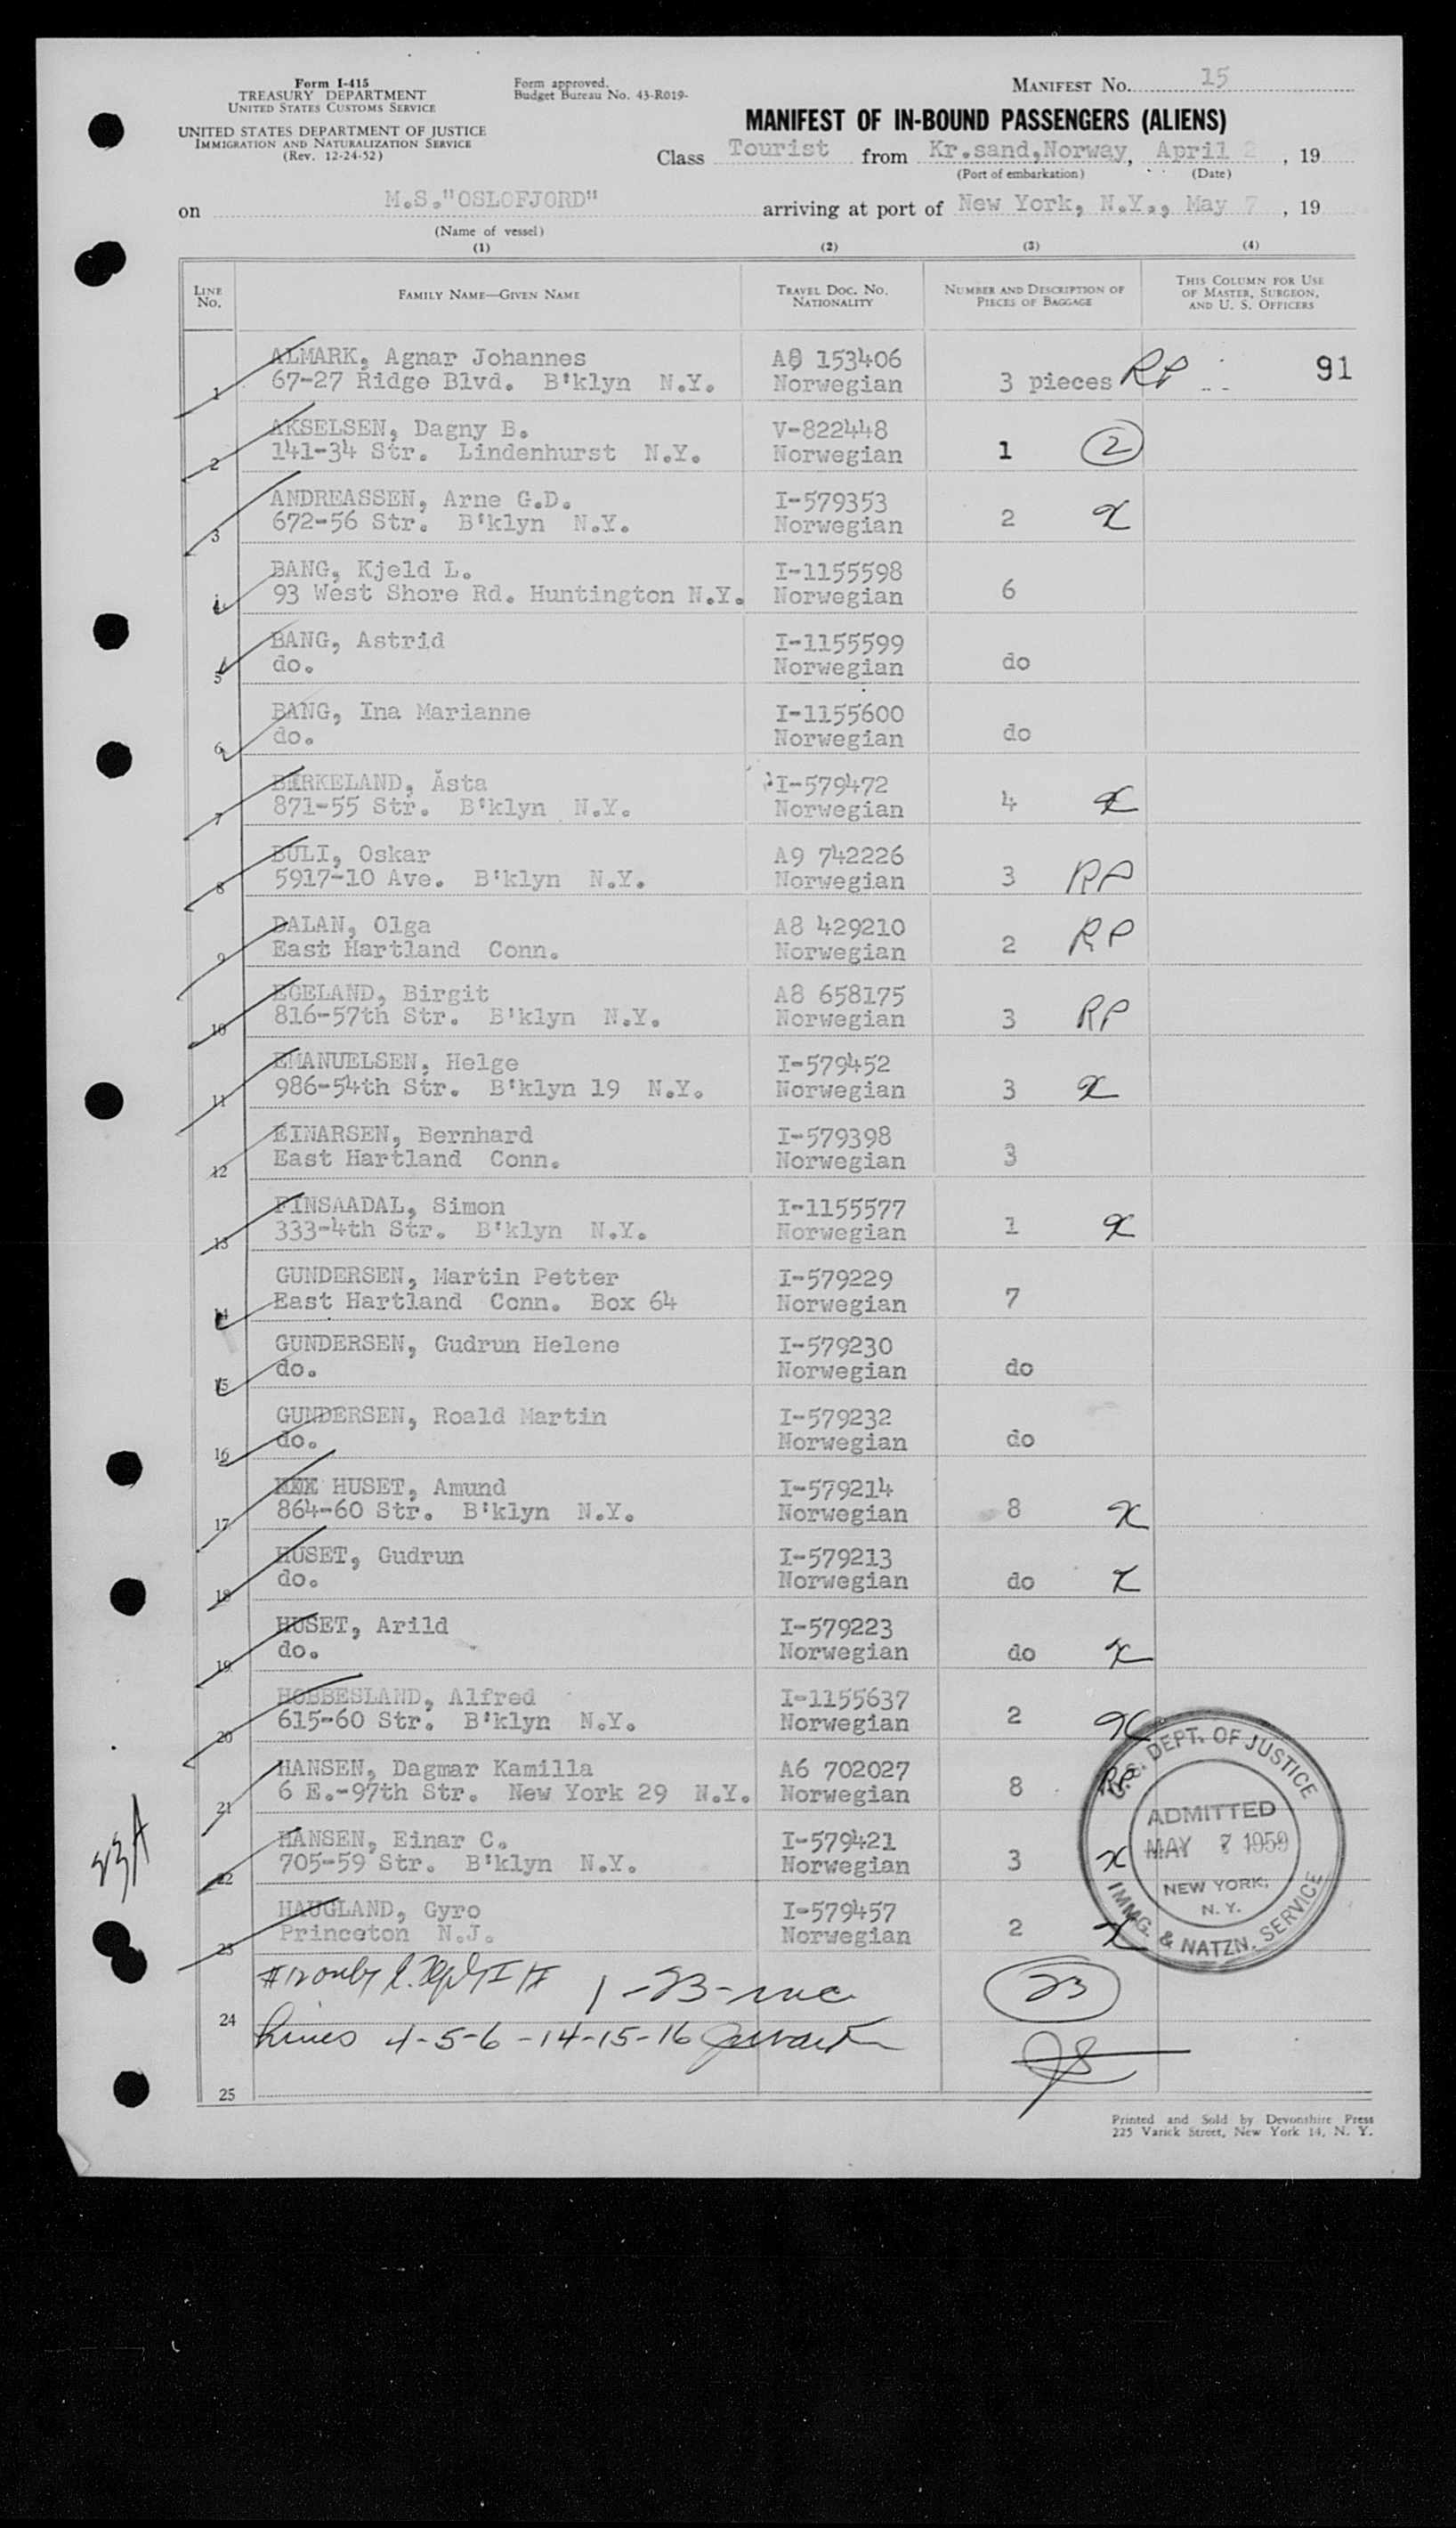 Form I-415
TREASURY DEPARTMENT
UNITED STATES CUSTOMS SERVICE
UNITED STATES DEPARTMENT OF JUSTICE
IMMIGRATION AND NATURALIZATION SERVICE
(Rev. 12-24-52)
Form approved.
Budget Bureau No. 43-R019-
MANIFEST NO. 15
MANIFEST OF IN-BOUND PASSENGERS (ALIENS)
Class Tourist from Kr.sand,Norway, April 2, 19
(Port of embarkation) (Date)
on M.S."OSLOFJORD" arriving at port of New York, N.Y., May 7, 19
(Name of vessel)
(1) (2) (3) (4)
LINE NO. FAMILY NAME—GIVEN NAME TRAVEL DOC. NO. NATIONALITY NUMBER AND DESCRIPTION OF PIECES OF BAGGAGE THIS COLUMN FOR USE OF MASTER, SURGEON, AND U. S. OFFICERS
1 ALMARK, Agnar Johannes A8 153406
67-27 Ridge Blvd. B'klyn N.Y. Norwegian 3 pieces RP 91
2 AKSELSEN, Dagny B. V-822448
141-34 Str. Lindenhurst N.Y. Norwegian 1 2
3 ANDREASSEN, Arne G.D. I-579353
672-56 Str. B'klyn N.Y. Norwegian 2 X
4 BANG, Kjeld L. I-1155598
93 West Shore Rd. Huntington N.Y. Norwegian 6
5 BANG, Astrid I-1155599
do. Norwegian do
6 BANG, Ina Marianne I-1155600
do. Norwegian do
7 BIRKELAND, Åsta I-579472
871-55 Str. B'klyn N.Y. Norwegian 4 X
8 BULI, Oskar A9 742226
5917-10 Ave. B'klyn N.Y. Norwegian 3 RP
9 DALAN, Olga A8 429210
East Hartland Conn. Norwegian 2 RP
10 EGELAND, Birgit A8 658175
816-57th Str. B'klyn N.Y. Norwegian 3 RP
11 EMANUELSEN, Helge I-579452
986-54th Str. B'klyn 19 N.Y. Norwegian 3 X
12 EINARSEN, Bernhard I-579398
East Hartland Conn. Norwegian 3
13 FINSAADAL, Simon I-1155577
333-4th Str. B'klyn N.Y. Norwegian 1 X
14 GUNDERSEN, Martin Petter I-579229
East Hartland Conn. Box 64 Norwegian 7
15 GUNDERSEN, Gudrun Helene I-579230
do. Norwegian do
16 GUNDERSEN, Roald Martin I-579232
do. Norwegian do
17 HUSET, Amund I-579214
864-60 Str. B'klyn N.Y. Norwegian 8 X
18 HUSET, Gudrun I-579213
do. Norwegian do X
19 HUSET, Arild I-579223
do. Norwegian do X
20 HOBBESLAND, Alfred I-1155637
615-60 Str. B'klyn N.Y. Norwegian 2 X
21 HANSEN, Dagmar Kamilla A6 702027
6 E.-97th Str. New York 29 N.Y. Norwegian 8 RP
22 HANSEN, Einar C. I-579421
705-59 Str. B'klyn N.Y. Norwegian 3 X
23 HAUGLAND, Gyro I-579457
Princeton N.J. Norwegian 2 X
U.S. DEPT. OF JUSTICE
ADMITTED
MAY 7 1959
NEW YORK,
N. Y.
IMMG. & NATZN. SERVICE
23A
#12 only 1-23-inc 23
24
Lines 4-5-6-14-15-16
25
Printed and Sold by Devonshire Press
225 Varick Street, New York 14, N. Y.